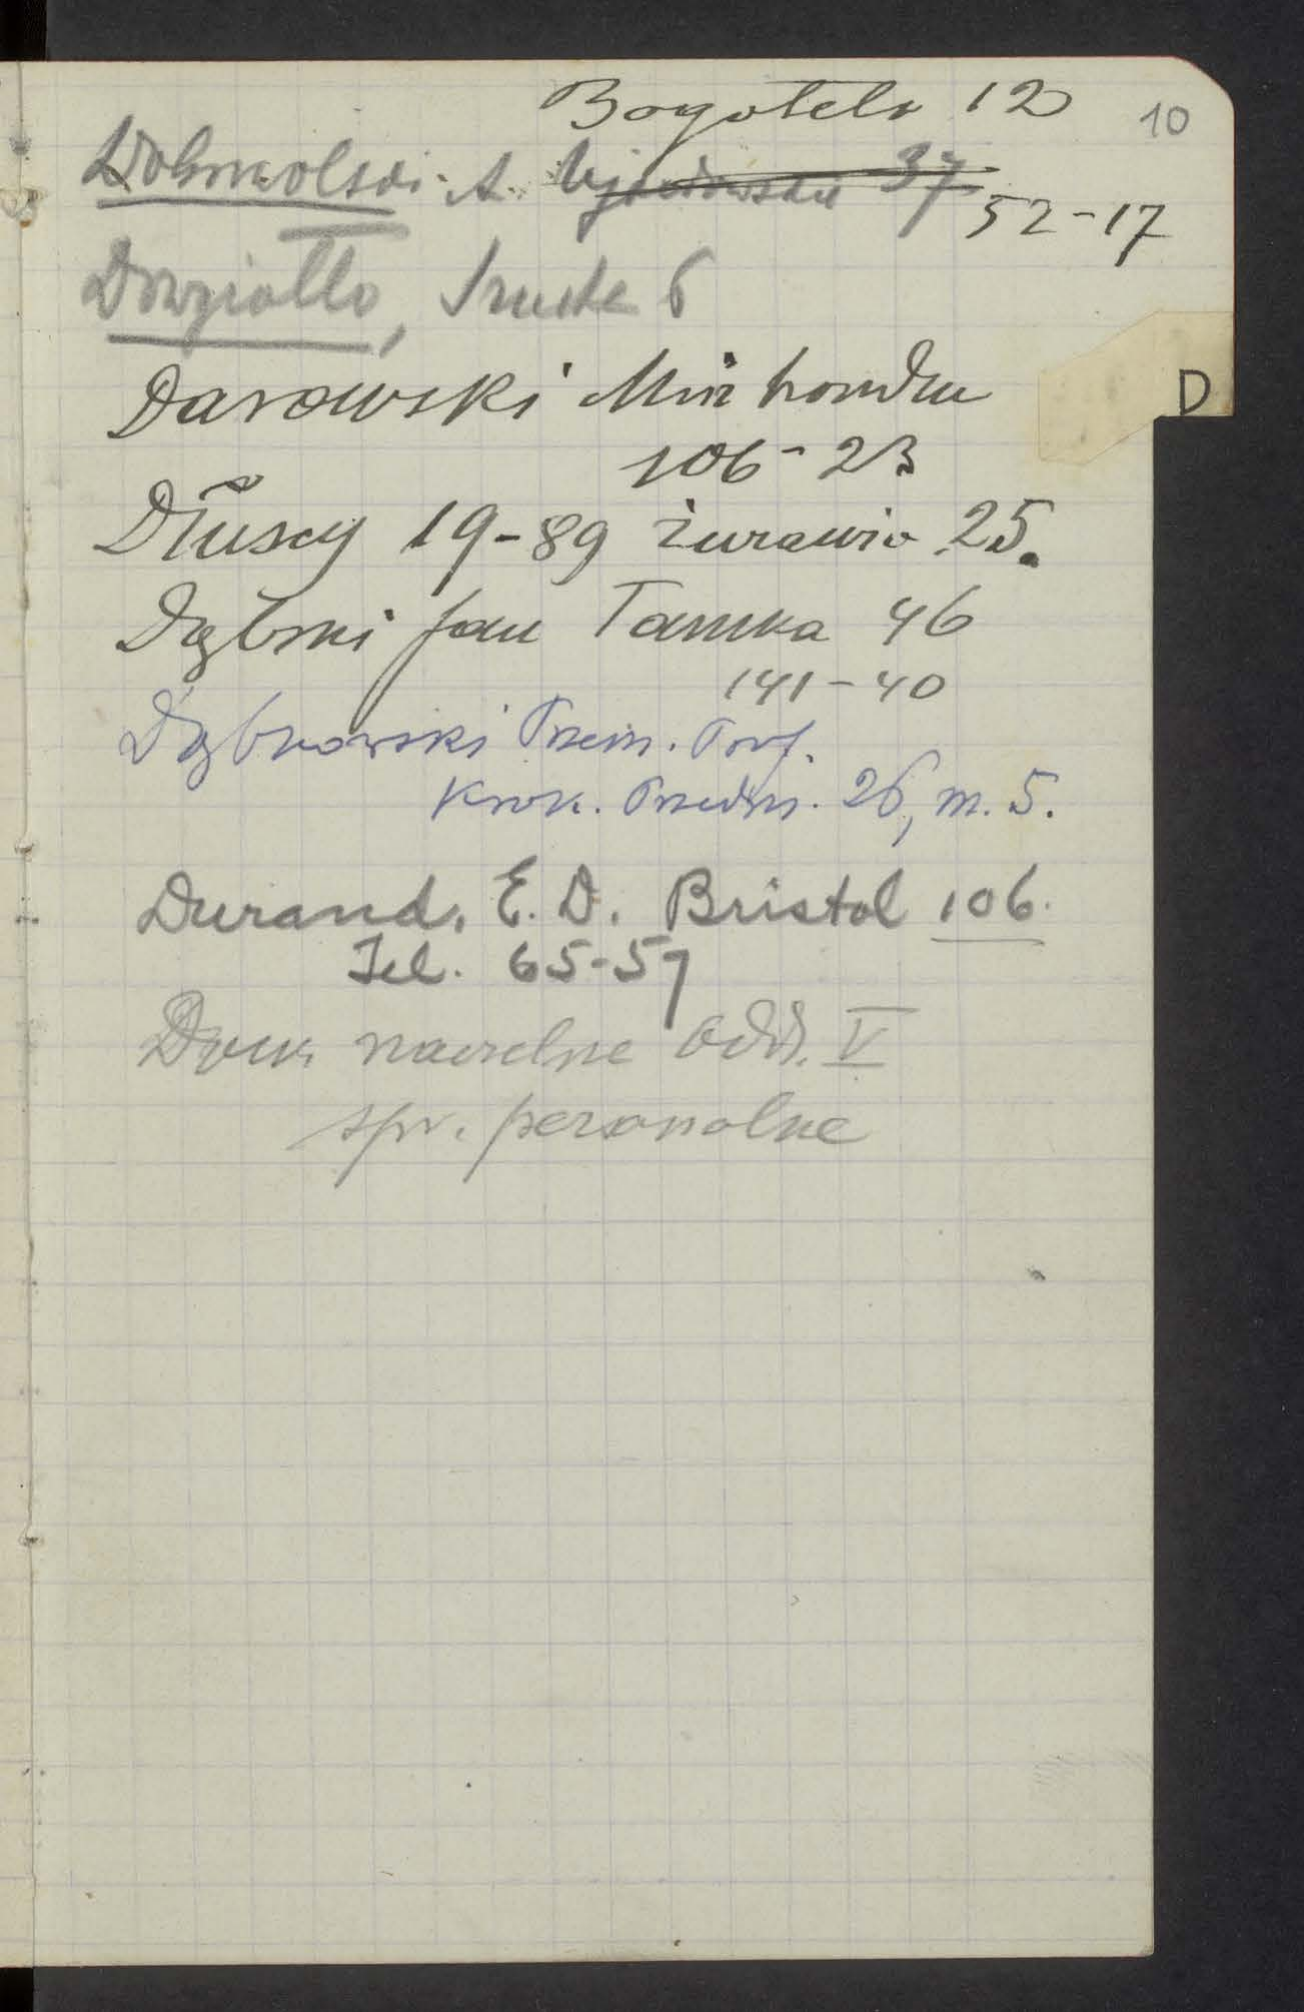 Bagatela 12 10
Dobrowolski A. Ujazdowskie 37
52-17
Dowgiałło, 6
Darowski Min handlu
106-23
Dłuscy 19-89 Żurawia 25.
Dąbski Jan Tamka 46
141-40
Dąbrowski Przem. Prof.
Krak. Przedm. 26, m. 5.
D
Durand, E. D. Bristol 106.
Tel. 65-57
Dow. naczelne Odd. V
spr. personalne